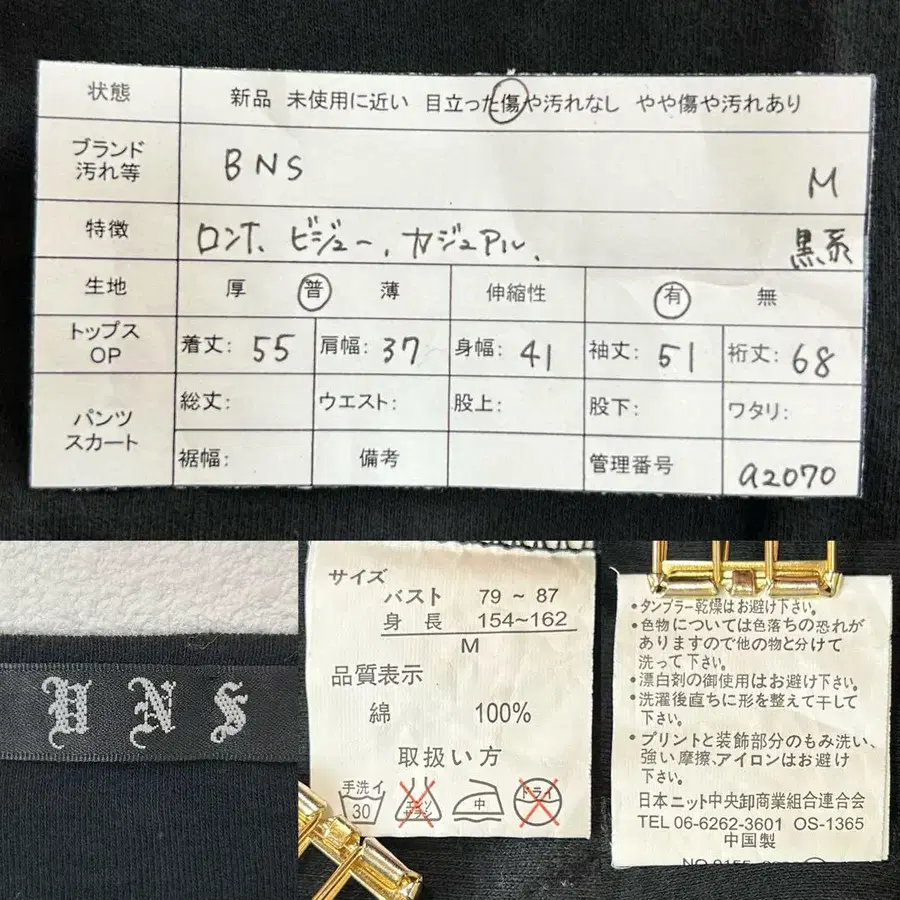 状態 新品 未使用に近い 目立った傷や汚れなし やや傷や汚れあり
ブランド
汚れ等 BNS M
特徴 ロンT、ビジュー、カジュアル、 黒系
生地 厚 普 薄 伸縮性 有 無
トップス
OP 着丈: 55 肩幅: 37 身幅: 41 袖丈: 51 裄丈: 68
パンツ
スカート 総丈: ウエスト: 股上: 股下: ワタリ:
裾幅: 備考 管理番号 a2070
BNS
サイズ
バスト 79 ~ 87
身長 154~162
M
品質表示
綿 100%
取扱い方
手洗イ
30
エンソ
サラシ
中
ドライ
•タンブラー乾燥はお避け下さい。
•色物については色落ちの恐れが
ありますので他の物と分けて
洗って下さい。
•漂白剤の御使用はお避け下さい。
•洗濯後直ちに形を整えて干して
下さい。
•プリントと装飾部分のもみ洗い、
強い摩擦、アイロンはお避け
下さい。
日本ニット中央卸商業組合連合会
TEL 06-6262-3601 OS-1365
中国製